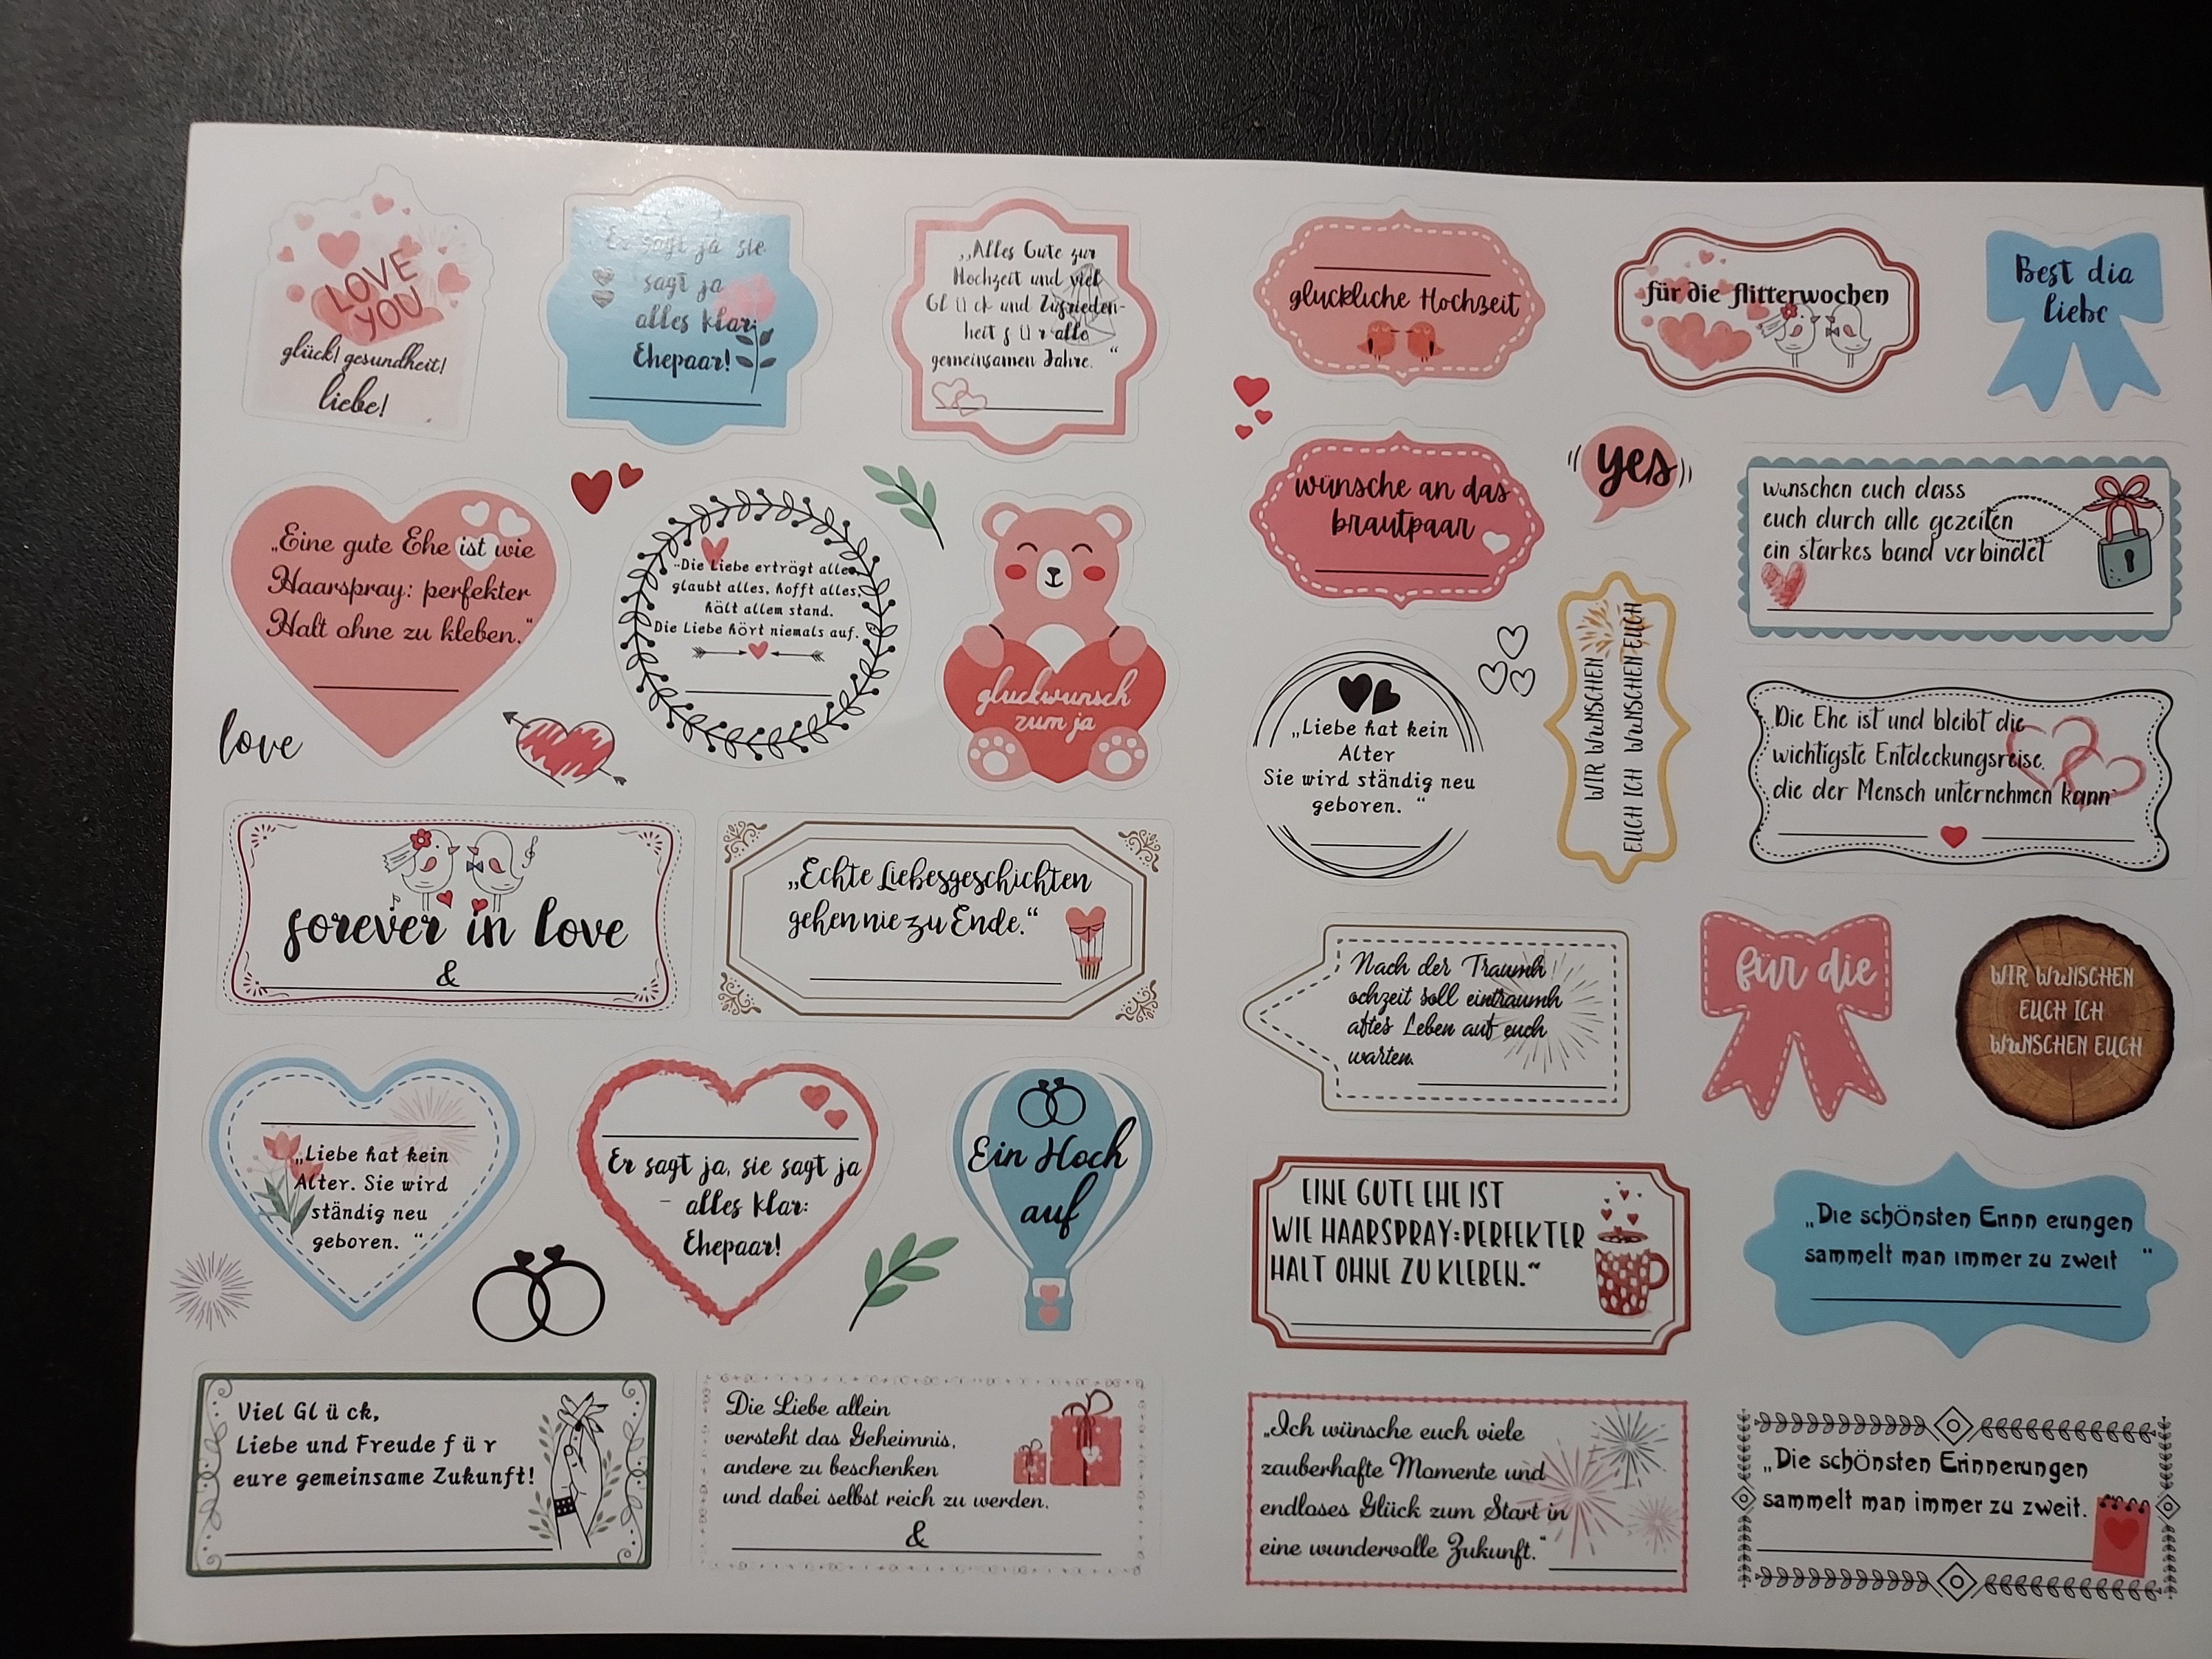 LOVE
YOU
glück! gesundheit!
liebe!
Er sagt ja sie
sagt ja
alles klar:
Ehepaar!
„Alles Gute zur
Hochzeit und viel
Gl ü ck und Zufrieden-
heit f ü r alle
gemeinsamen Jahre. “
glückliche Hochzeit
für die flitterwochen
Best dia
liebe
„Eine gute Ehe ist wie
Haarspray: perfekter
Halt ohne zu kleben.“
„Die Liebe erträgt alles,
glaubt alles, hofft alles,
hält allem stand.
Die Liebe hört niemals auf.
gluckwunsch
zum ja
love
wünsche an das
brautpaar
yes
wunschen euch dass
euch durch alle gezeiten
ein starkes band verbindet
„Liebe hat kein
Alter
Sie wird ständig neu
geboren. “
WIR WuNSCHEN
EUCH ICH WuNSCHEN EUCH
Die Ehe ist und bleibt die
wichtigste Entdeckungsreise,
die der Mensch unternehmen kann
forever in love
&
„Echte Liebesgeschichten
gehen nie zu Ende.“
Nach der Traumh
ochzeit soll eintraumh
aftes Leben auf euch
warten.
für die
WIR WuNSCHEN
EUCH ICH
WuNSCHEN EUCH
„Liebe hat kein
Alter. Sie wird
ständig neu
geboren. “
Er sagt ja, sie sagt ja
- alles klar:
Ehepaar!
Ein Hoch
auf
EINE GUTE EHE IST
WIE HAARSPRAY:PERFEKTER
HALT OHNE ZU KLEBEN.“
„Die schönsten Erinn erungen
sammelt man immer zu zweit “
Viel Gl ü ck,
Liebe und Freude f ü r
eure gemeinsame Zukunft!
Die Liebe allein
versteht das Geheimnis,
andere zu beschenken
und dabei selbst reich zu werden.
&
„Ich wünsche euch viele
zauberhafte Momente und
endloses Glück zum Start in
eine wundervolle Zukunft.“
„Die schönsten Erinnerungen
sammelt man immer zu zweit.